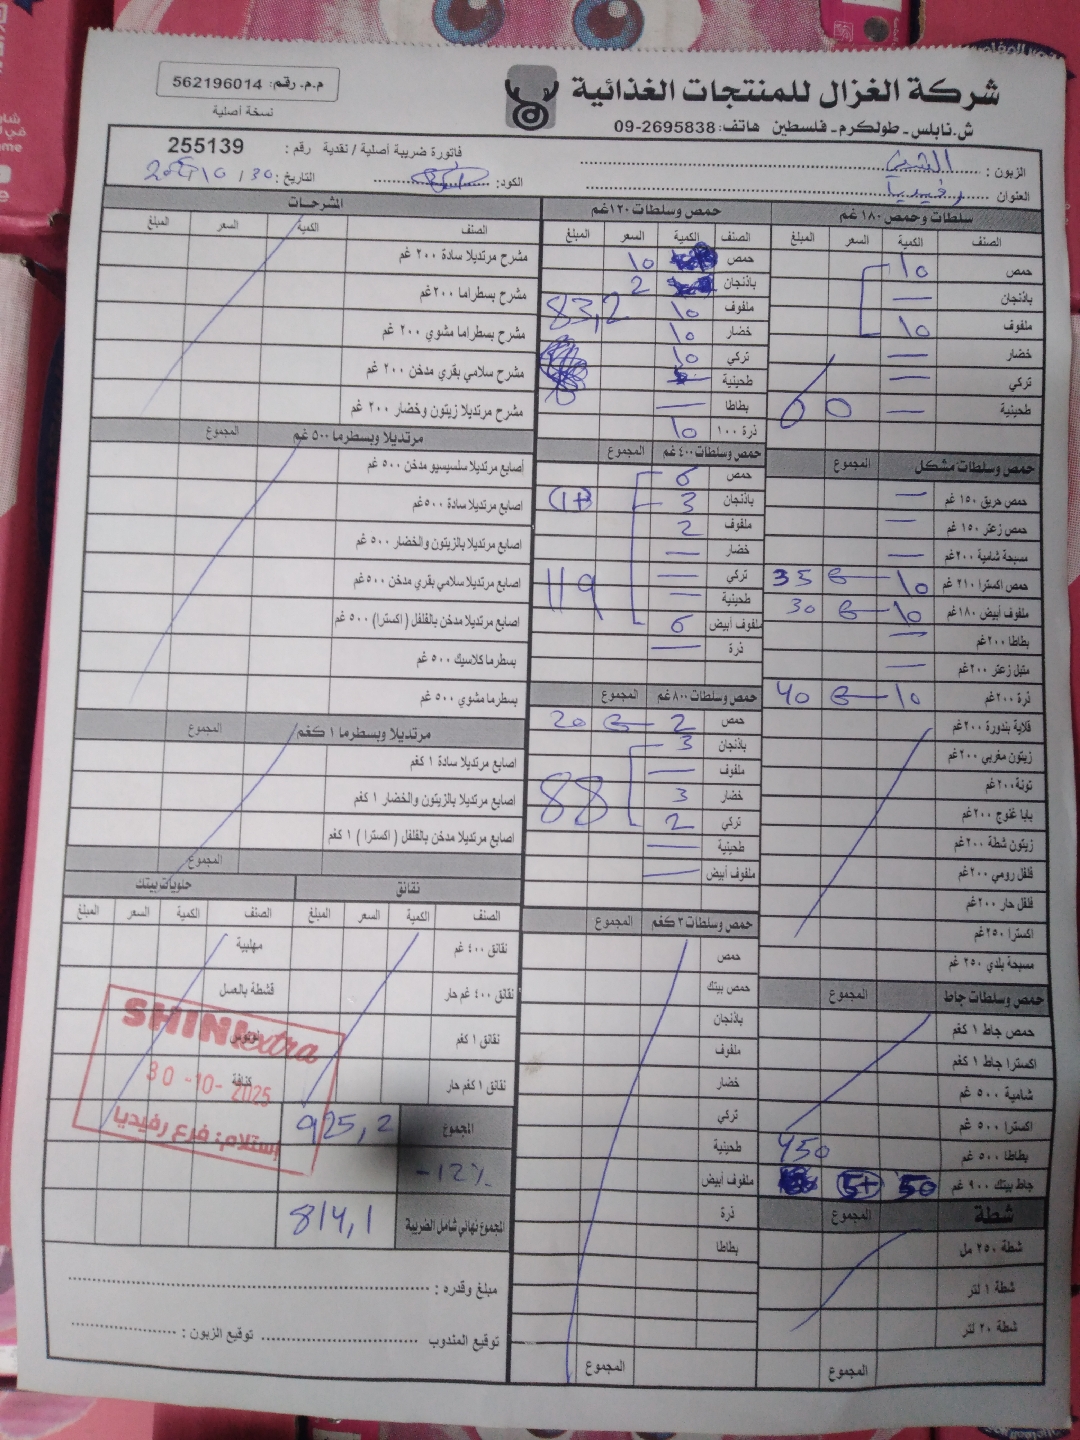 شركة الغزال للمنتجات الغذائية
م.م. رقم: 562196014
نسخة أصلية
ش.نابلس - طولكرم - فلسطين هاتف: 09-2695838
الزبون :
العنوان رفيديا
فاتورة ضريبة أصلية / نقدية رقم : 255139
الكود:
التاريخ: 30 / 10 /
سلطات وحمص ١٨٠ غم
الصنف الكمية السعر المبلغ
حمص 10
باذنجان —
ملفوف 10
خضار —
تركي —
طحينية —
60
حمص وسلطات مشكل المجموع
حمص حريق ١٥٠ غم —
حمص زعتر ١٥٠ غم —
مسبحة شامية ٢٠٠غم —
حمص اكسترا ٢١٠ غم 10 35
ملفوف أبيض ١٨٠غم 10 30
بطاطا ٢٠٠غم —
متبل زعتر ٢٠٠غم —
ذرة ٢٠٠غم 10 40
قلاية بندورة ٢٠٠غم
زيتون مغربي ٢٠٠غم
تونة ٢٠٠غم
بابا غنوج ٢٠٠غم
زيتون شطة ٢٠٠غم
فلفل رومي ٢٠٠غم
فلفل حار ٢٠٠غم
اكسترا ٢٥٠غم
مسبحة بلدي ٢٥٠ غم
حمص وسلطات جاط المجموع
حمص جاط ١ كغم
اكسترا جاط ١ كغم
شامية ٥٠٠ غم
اكسترا ٥٠٠ غم
بطاطا ٥٠٠ غم 450
جاط بيتك ٩٠٠ غم 50 5+
شطة المجموع
شطة ٢٥٠ مل
شطة ١ لتر
شطة ٢٠ لتر
المجموع
حمص وسلطات ١٢٠غم
الصنف الكمية السعر المبلغ
حمص 10
باذنجان 2
ملفوف 10 83,2
خضار 10
تركي 10
طحينية
بطاطا —
ذرة ١٠٠ 10
حمص وسلطات ٤٠٠ غم المجموع
حمص 6
باذنجان 3 (1+)
ملفوف 2
خضار —
تركي — 119
طحينية —
ملفوف أبيض 6
ذرة —
حمص وسلطات ٨٠٠ غم المجموع
حمص 2 20
باذنجان 3
ملفوف —
خضار 3 88
تركي 2
طحينية —
ملفوف أبيض —
حمص وسلطات ٣ كغم المجموع
حمص
حمص بيتك
باذنجان
ملفوف
خضار
تركي
طحينية
ملفوف أبيض
ذرة
بطاطا
المجموع
المشرحات
الصنف الكمية السعر المبلغ
مشرح مرتديلا سادة ٢٠٠ غم
مشرح بسطراما ٢٠٠غم
مشرح بسطراما مشوي ٢٠٠ غم
مشرح سلامي بقري مدخن ٢٠٠ غم
مشرح مرتديلا زيتون وخضار ٢٠٠ غم
مرتديلا وبسطرما ٥٠٠ غم المجموع
أصابع مرتديلا سلسيسيو مدخن ٥٠٠ غم
اصابع مرتديلا سادة ٥٠٠غم
اصابع مرتديلا بالزيتون والخضار ٥٠٠ غم
اصابع مرتديلا سلامي بقري مدخن ٥٠٠غم
اصابع مرتديلا مدخن بالفلفل ( اكسترا ) ٥٠٠ غم
بسطرما كلاسيك ٥٠٠ غم
بسطرما مشوي ٥٠٠ غم
مرتديلا وبسطرما ١ كغم المجموع
اصابع مرتديلا سادة ١ كغم
اصابع مرتديلا بالزيتون والخضار ١ كغم
اصابع مرتديلا مدخن بالفلفل ( اكسترا ) ١ كغم
المجموع
نقانق
الصنف الكمية السعر المبلغ
نقانق ٤٠٠ غم
نقانق ٤٠٠ غم حار
نقانق ١ كغم
نقانق ١ كغم حار
حلويات بيتك
الصنف الكمية السعر المبلغ
مهلبية
قشطة بالعسل
كنافة
SHINI extra
30 -10- 2025
إستلام: فرع رفيديا
المجموع 925,2
-12%
المجموع نهائي شامل الضريبة 814,1
مبلغ وقدره :
توقيع المندوب توقيع الزبون :